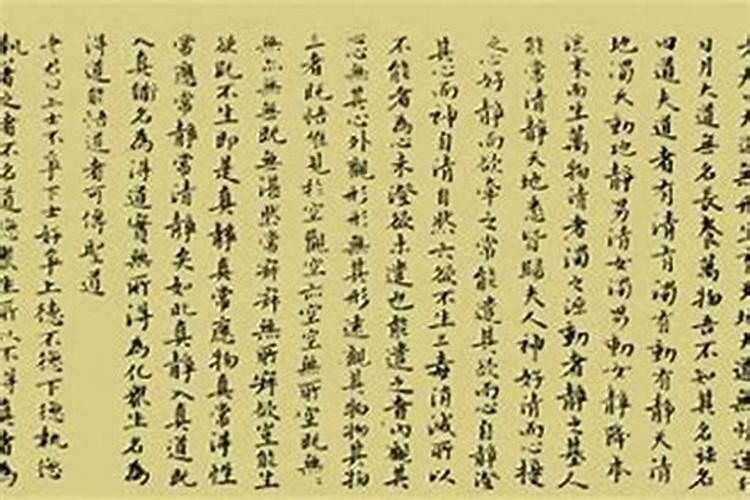 大道無形生育天地大道無情運
日月大道無名長養萬物吾不知其名強名
曰道夫道者有清有濁有動有靜天清
地濁天動地靜男清女濁男動女靜降本
流末而生萬物清者濁之源動者靜之基人
能常清靜天地悉皆歸夫人神好清而心擾
之心好靜而欲牽之常能遣其欲而心自靜澄
其心而神自清自然六欲不生三毒消滅所以
不能者為心未澄欲未遣也能遣之者內觀其
心無其心外觀形形無其形遠觀其物物其物
三者既悟惟見於空觀空亦空空無所空既無
無亦無無既無湛然常寂寂無所寂欲豈能生
欲既不生即是真靜真常應物真常得性
常應常靜常清靜矣如此真靜入真道既
入真道名為得道實無所得為化眾生名為
得道能悟道者可傳聖道
老君曰上士不爭下士好爭上德不德下德執德
執著之者不名道德眾生所以不得真者為